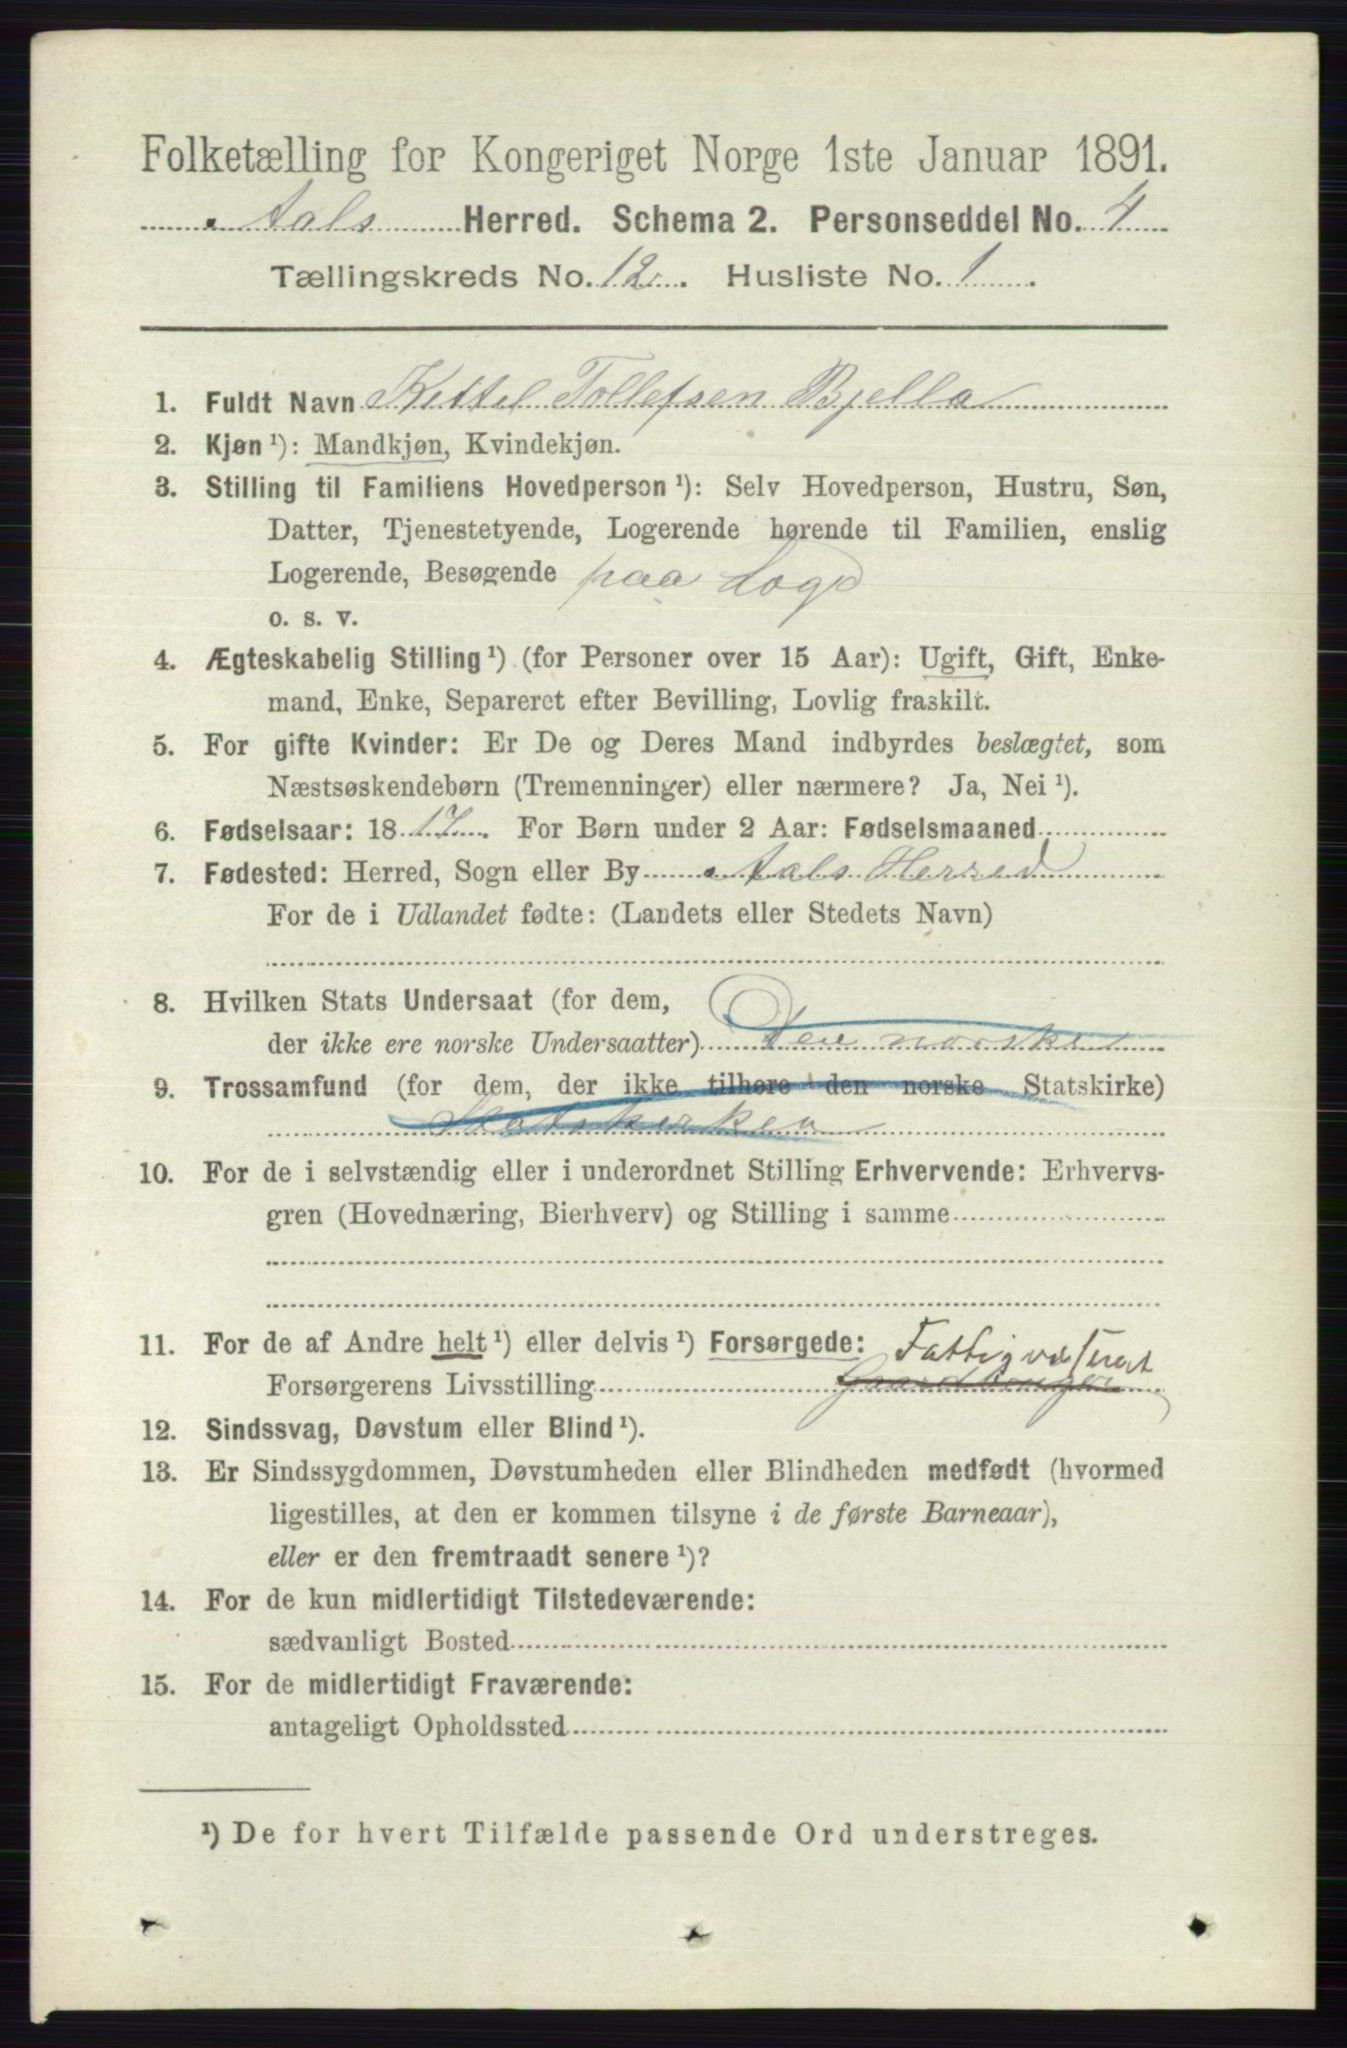 Folketælling for Kongeriget Norge 1ste Januar 1891.
Aals Herred. Schema 2. Personseddel No. 4
Tællingskreds No. 12. Husliste No. 1.
1. Fuldt Navn Kittel Tollefsen Bjella
2. Kjøn ¹): Mandkjøn, Kvindekjøn.
3. Stilling til Familiens Hovedperson ¹): Selv Hovedperson, Hustru, Søn,
Datter, Tjenestetyende, Logerende hørende til Familien, enslig
Logerende, Besøgende paa Logd
o. s. v.
4. Ægteskabelig Stilling ¹) (for Personer over 15 Aar): Ugift, Gift, Enke-
mand, Enke, Separeret efter Bevilling, Lovlig fraskilt.
5. For gifte Kvinder: Er De og Deres Mand indbyrdes beslægtet, som
Næstsøskendebørn (Tremenninger) eller nærmere? Ja, Nei ¹).
6. Fødselsaar: 1817. For Børn under 2 Aar: Fødselsmaaned
7. Fødested: Herred, Sogn eller By Aals Herred
For de i Udlandet fødte: (Landets eller Stedets Navn)
8. Hvilken Stats Undersaat (for dem,
der ikke ere norske Undersaatter) Den norske
9. Trossamfund (for dem, der ikke tilhøre den norske Statskirke)
Statskirken
10. For de i selvstændig eller i underordnet Stilling Erhvervende: Erhvervs-
gren (Hovednæring, Bierhverv) og Stilling i samme
11. For de af Andre helt ¹) eller delvis ¹) Forsørgede: Fattigvæsenet
Forsørgerens Livsstilling Gaardbruger
12. Sindssvag, Døvstum eller Blind ¹).
13. Er Sindssygdommen, Døvstumheden eller Blindheden medfødt (hvormed
ligestilles, at den er kommen tilsyne i de første Barneaar),
eller er den fremtraadt senere ¹)?
14. For de kun midlertidigt Tilstedeværende:
sædvanligt Bosted
15. For de midlertidigt Fraværende:
antageligt Opholdssted
¹) De for hvert Tilfælde passende Ord understreges.